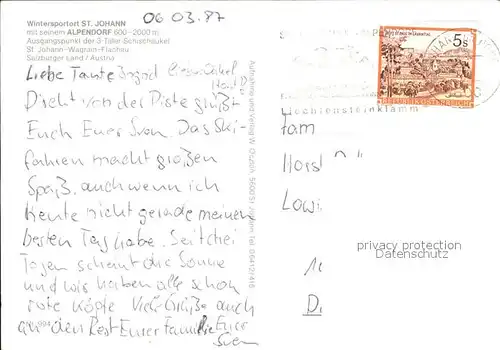 Wintersportort ST. JOHANN
mit seinem ALPENDORF 600-2000 m
Ausgangspunkt der 3-Täler Schischaukel
St. Johann-Wagrain-Flachau
Salzburger Land / Austria
06 03. 87
Liebe Tante Lieber Onkel
Direkt von der Piste grüßt
Euch Euer Sven. Das Ski-
fahren macht großen
Spaß. auch wenn ich
heute nicht gerade meinen
besten Tag habe. Seit drei
Tagen scheint die Sonne
und wir haben alle schon
rote Köpfe Viele Grüße auch
an den Rest Eurer Familie Euer
Sven
Aufnahme und Verlag
5s
REPUBLIK ÖSTERREICH
Liechtensteinklamm
Fam
Horst
privacy protection
www.ansichtskarten-center.de
D